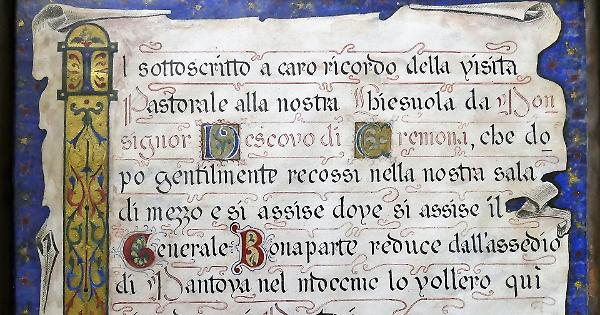 Il sottoscritto a caro ricordo della visita
Pastorale alla nostra Chiesuola da Mon
signor Vescovo di Cremona, che do_
po gentilmente recossi nella nostra sala
di mezzo e si assise dove si assise il
Generale Bonaparte reduce dall'assedio
di Mantova nel lo vollero qui